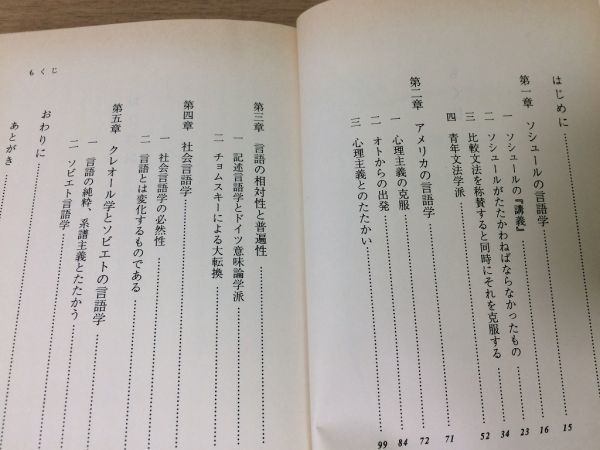 はじめに 15
第一章 ソシュールの言語学 16
一 ソシュールの『講義』 23
二 ソシュールがたたかわねばならなかったもの 34
三 比較文法を称賛すると同時にそれを克服する 52
四 青年文法学派
第二章 アメリカの言語学 71
一 心理主義の克服 72
二 オトからの出発 84
三 心理主義とのたたかい 99
もくじ
第三章 言語の相対性と普遍性
一 記述言語学とドイツ意味論学派
二 チョムスキーによる大転換
第四章 社会言語学
一 社会言語学の必然性
二 言語とは変化するものである
第五章 クレオール学とソビエトの言語学
一 言語の純粋、系譜主義とたたかう
二 ソビエト言語学
おわりに
あとがき